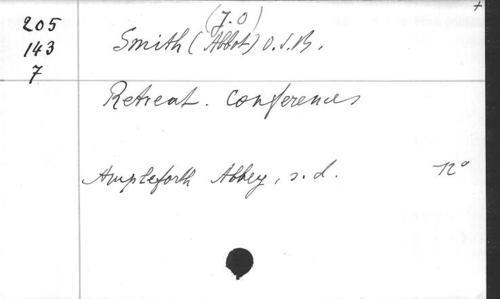 205
143
7
(J.O)
Smith (Abbot) O.S.B.
Retreat. Conferences
Ampleforth Abbey, s.d. 12°